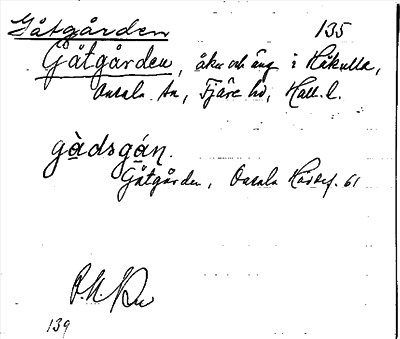 Gåtgården 135
Gåtgården, åker och äng i Håkulla,
Onsala sn, Fjäre hd, Hall. l.
gàdsgán.
Gåtgården, Onsala Hdskf. 61
139